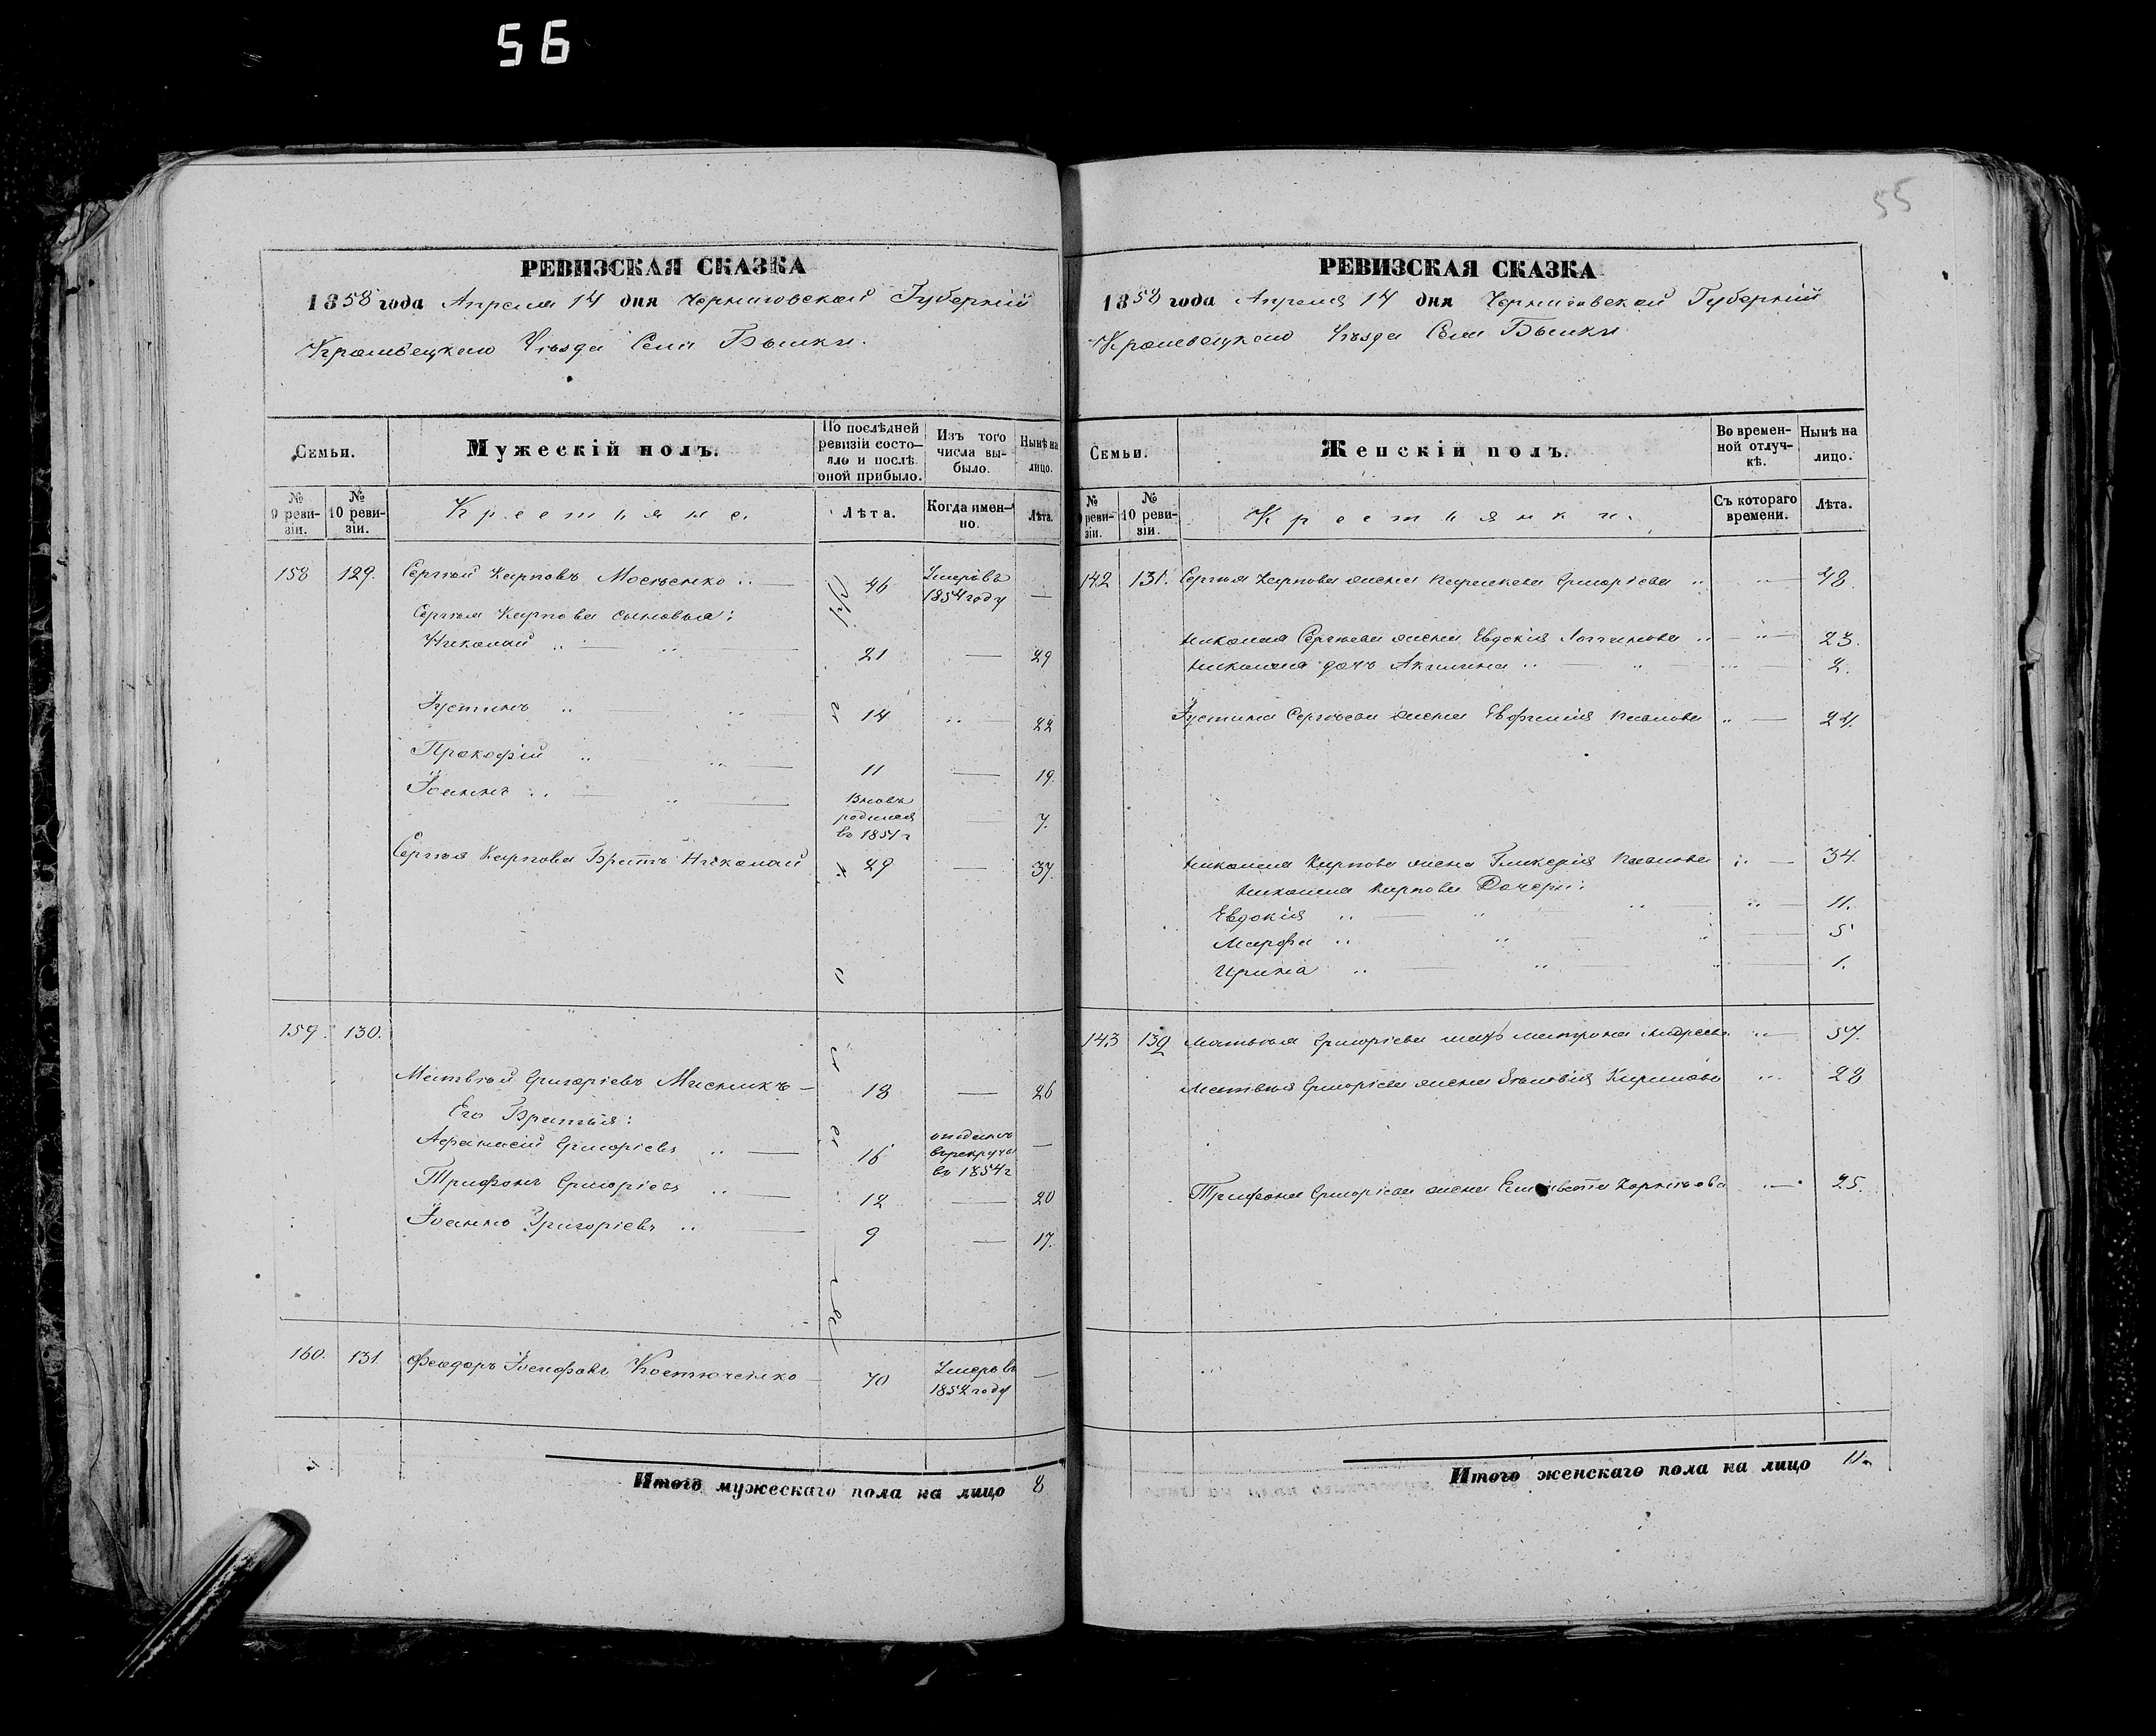 56
55
РЕВИЗСКАЯ СКАЗКА
1858 года Апреля 14 дня Черниговской Губерніи
Кролевецкаго Уѣзда Села Быки.
Семьи.
Мужескій полъ.
По послѣдней ревизіи состо-яло и послѣ оной прибыло.
Изъ того числа вы-было.
Нынѣ на лицо.
№ 9 реви-зіи.
№ 10 реви-зіи.
Крестьяне.
Лѣта.
Когда имен-но.
Лѣта.
158 129. Сергѣй Карповъ 46 Умеръ въ 1854 году —
Сергѣя Карпова сыновья:
Николай „ — „ — 21 — 29
Іустинъ „ „ — 14 „ — 22
Прокофій „ — „ — 11 — 19.
Іоаннъ „ — „ — Вновь родился въ 1851 г — 7.
Сергѣя Карпова Братъ Николай 29 — 37.
159. 130.
Матвѣй Григорьевъ Мисникъ — 18 — 26
Его Братья:
Афанасій Григоріевъ „ — 16 отданъ въ рекруты въ 1854 г —
Трифонъ Григоріевъ „ — 12 — 20
Іоаннъ Григоріевъ „ — 9 — 17.
160. 131. Феодоръ Іосифовъ Костюченко — 70 Умеръ въ 1852 году —
Итого мужескаго пола на лицо 8
РЕВИЗСКАЯ СКАЗКА
1858 года Апреля 14 дня Черниговской Губерніи
Кролевецкаго Уѣзда Села Быки
Семьи.
Женскій полъ.
Во времен-ной отлуч-кѣ.
Нынѣ на лицо.
№ 9 реви-зіи.
№ 10 реви-зіи.
Крестьянки.
Съ котораго времени.
Лѣта.
142 131. Сергѣя Карпова жена Параскева Григоріева „ „ — 48.
Николая Сергѣева жена Евдокія „ — „ — 23.
Николая дочь Акилина „ — „ — 2.
Іустина Сергѣева жена Павлова „ — 24.
Николая Карпова жена Гликерія Павлова „ — 34.
Николая Карпова Дочери:
Евдокія „ — „ — „ — „ — 11.
Марфа „ „ — „ — 5
Ирина „ — „ — „ — 1.
143 132 Матвѣя Григоріева мать Матрона Андреева „ — 57.
Матвѣя Григоріева жена Кирилова „ — 28
Трифона Григоріева жена Елисавета Корнѣева „ — 25.
Итого женскаго пола на лицо 11